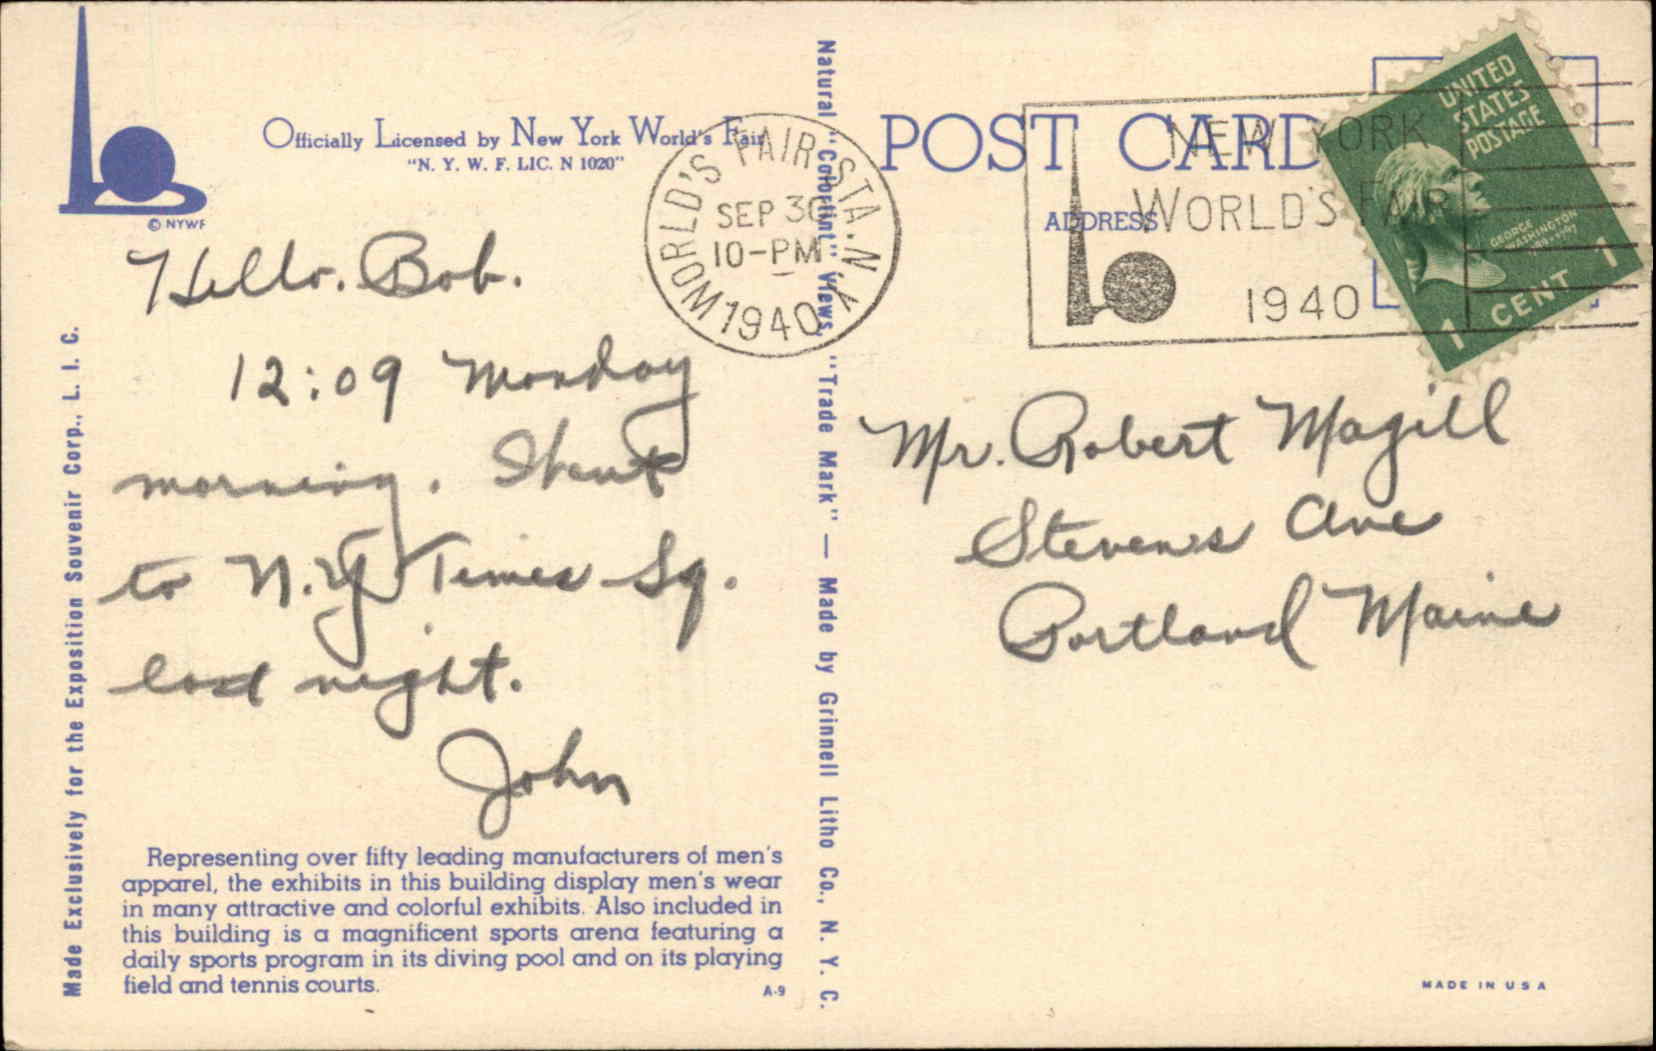 Officially Licensed by New York World's Fair
"N. Y. W. F. LIC. N 1020"
© NYWF
Hello. Bob.
12:09 Monday
morning. Went
to N.Y Times Sq.
last night.
John
Representing over fifty leading manufacturers of men's
apparel, the exhibits in this building display men's wear
in many attractive and colorful exhibits. Also included in
this building is a magnificent sports arena featuring a
daily sports program in its diving pool and on its playing
field and tennis courts.
A-9
Made Exclusively for the Exposition Souvenir Corp., L. I. C.
Natural "Colortint" Views, "Trade Mark" — Made by Grinnell Litho Co., N. Y. C.
WORLD'S FAIR STA. N.Y.
SEP 30
10-PM
1940
POST CARD
ADDRESS
NEW YORK
WORLD'S FAIR
1940
UNITED
STATES
POSTAGE
GEORGE
WASHINGTON
1 CENT 1
Mr. Robert Magill
Stevens Ave
Portland Maine
MADE IN U S A